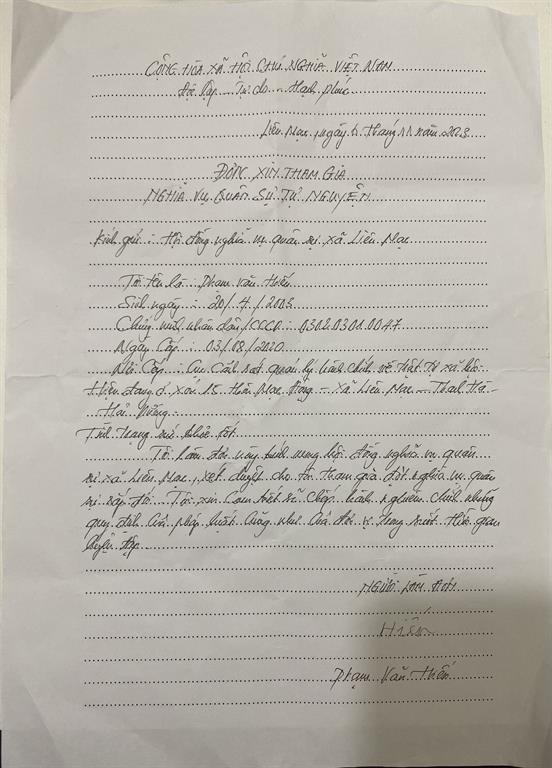 CỘNG HÒA XÃ HỘI CHỦ NGHĨA VIỆT NAM
Độc lập - Tự do - Hạnh phúc
Liên Mạc, ngày 6 tháng 11 năm 2023
ĐƠN XIN THAM GIA
NGHĨA VỤ QUÂN SỰ TỰ NGUYỆN
Kính gửi : Hội đồng nghĩa vụ quân sự xã Liên Mạc
Tôi tên là : Phạm Văn Hiến
Sinh ngày : 20/4/2003
Chứng minh nhân dân/CCCD : 030203010047
Ngày Cấp : 03/08/2020
Nơi Cấp : Cục Cảnh sát quản lý hành chính về trật tự xã hội
Hiện đang ở Xóm Mạc Động - Xã Liên Mạc - Thanh Hà -
Hải Dương
Tình trạng sức khỏe tốt
Tôi làm đơn này kính mong hội đồng nghĩa vụ quân
sự xã Liên Mạc, xét duyệt cho tôi tham gia đợt nghĩa vụ quân
sự sắp tới. Tôi xin Cam kết sẽ Chấp hành nghiêm chỉnh những
quy định của pháp luật cũng như của đơn vị trong suốt thời gian
luyện tập
NGƯỜI LÀM ĐƠN
Hiến
Phạm Văn Hiến